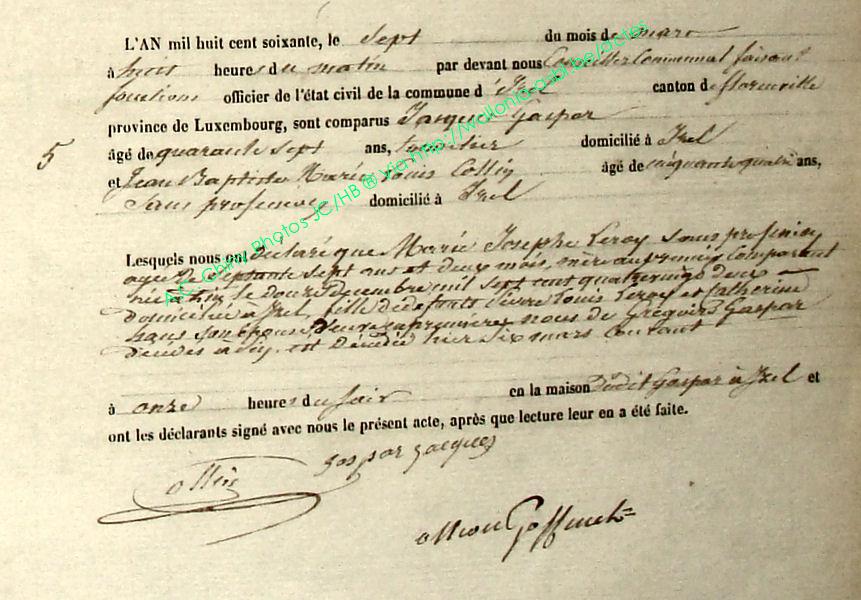 L'AN mil huit cent soixante, le Sept du mois de mars
à huit heures du matin par devant nous Conseiller Communal faisant
fonctions officier de l'état civil de la commune d'Izel canton de florenville
province de Luxembourg, sont comparus Jacques Gaspar
5
âgé de quarante sept ans, domicilié à Izel
et Jean Baptiste Marie Louis Collin âgé de cinquante quatre ans,
Sans profession domicilié à Izel
Lesquels nous ont déclaré que Marie Josephe Leroy sans profession
agée de Septante sept ans et deux mois, mère au premier Comparant
née à le douze decembre mil sept cent quatrevingt deux
domiciliée à Izel, fille de defunts Louis Leroy et Catherine
son épouse, veuve en premières de Grégoire Gaspar
est Décédée hier Six mars Courant
à onze heures du soir en la maison dudit Gaspar à Izel et
ont les déclarants signé avec nous le présent acte, après que lecture leur en a été faite.
Collin gaspar jacques
Goffinet
A.C. Chiny Photos JC/HB ® via http://wallonia-asbl.be/actes